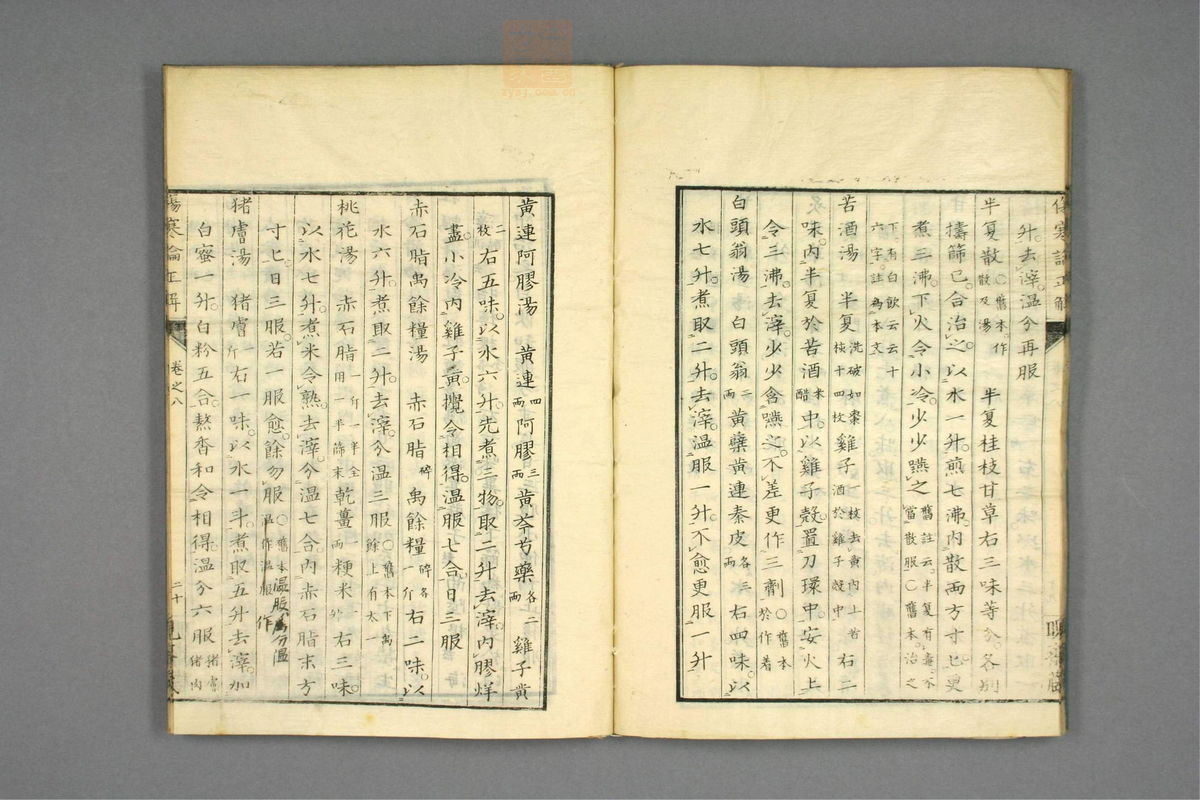 升去滓溫分再服
半夏散○舊本作散及湯　半夏桂枝甘草右三味等分各別
擣篩已合治之以水一升煎七沸內散兩方寸匕更
煮三沸下火令小冷少少嚥之舊註云半夏有毒不當散服○舊本治之
下有白飲云云十六字註為本文
苦酒湯　半夏洗破如棗核十四枚雞子一枚去黃內上苦酒於雞子殼中　右二
味內半夏於苦酒本酷中以雞子殼置刀環中安火上
令三沸去滓少少含嚥之不差更作三劑○舊本於作著
白頭翁湯　白頭翁二兩黃蘗黃連秦皮各三兩右四味以
水七升煮取二升去滓溫服一升不愈更服一升
黃連阿膠湯　黃連四兩阿膠三兩黃芩芍藥各二兩　雞子黃
二枚右五味以水六升先煮三物取二升去滓內膠烊
盡小冷內雞子黃攪令相得溫服七合日三服
赤石脂禹餘糧湯　赤石脂碎　禹餘糧碎各一斤右二味以
水六升煮取二升去滓分溫三服○舊本下禹餘上有太一
桃花湯　赤石脂一斤一半全用一半篩末乾薑一兩粳米一升右三味
以水七升煮米令熟去滓分溫七合內赤石脂末方
寸匕日三服若一服愈餘勿服○舊本溫服作分溫
猪膚湯　猪膚一斤右一味以水一斗煮取五升去滓加
白蜜一升白粉五合熬香和令相得溫分六服猪膚猪肉
傷寒論正解
卷之八
二十